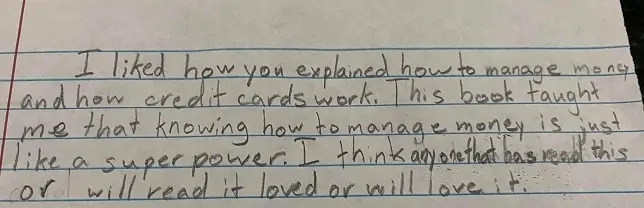 I liked how you explained how to manage money
and how credit cards work. This book taught
me that knowing how to manage money is just
like a super power. I think anyone that has read this
or will read it loved or will love it.